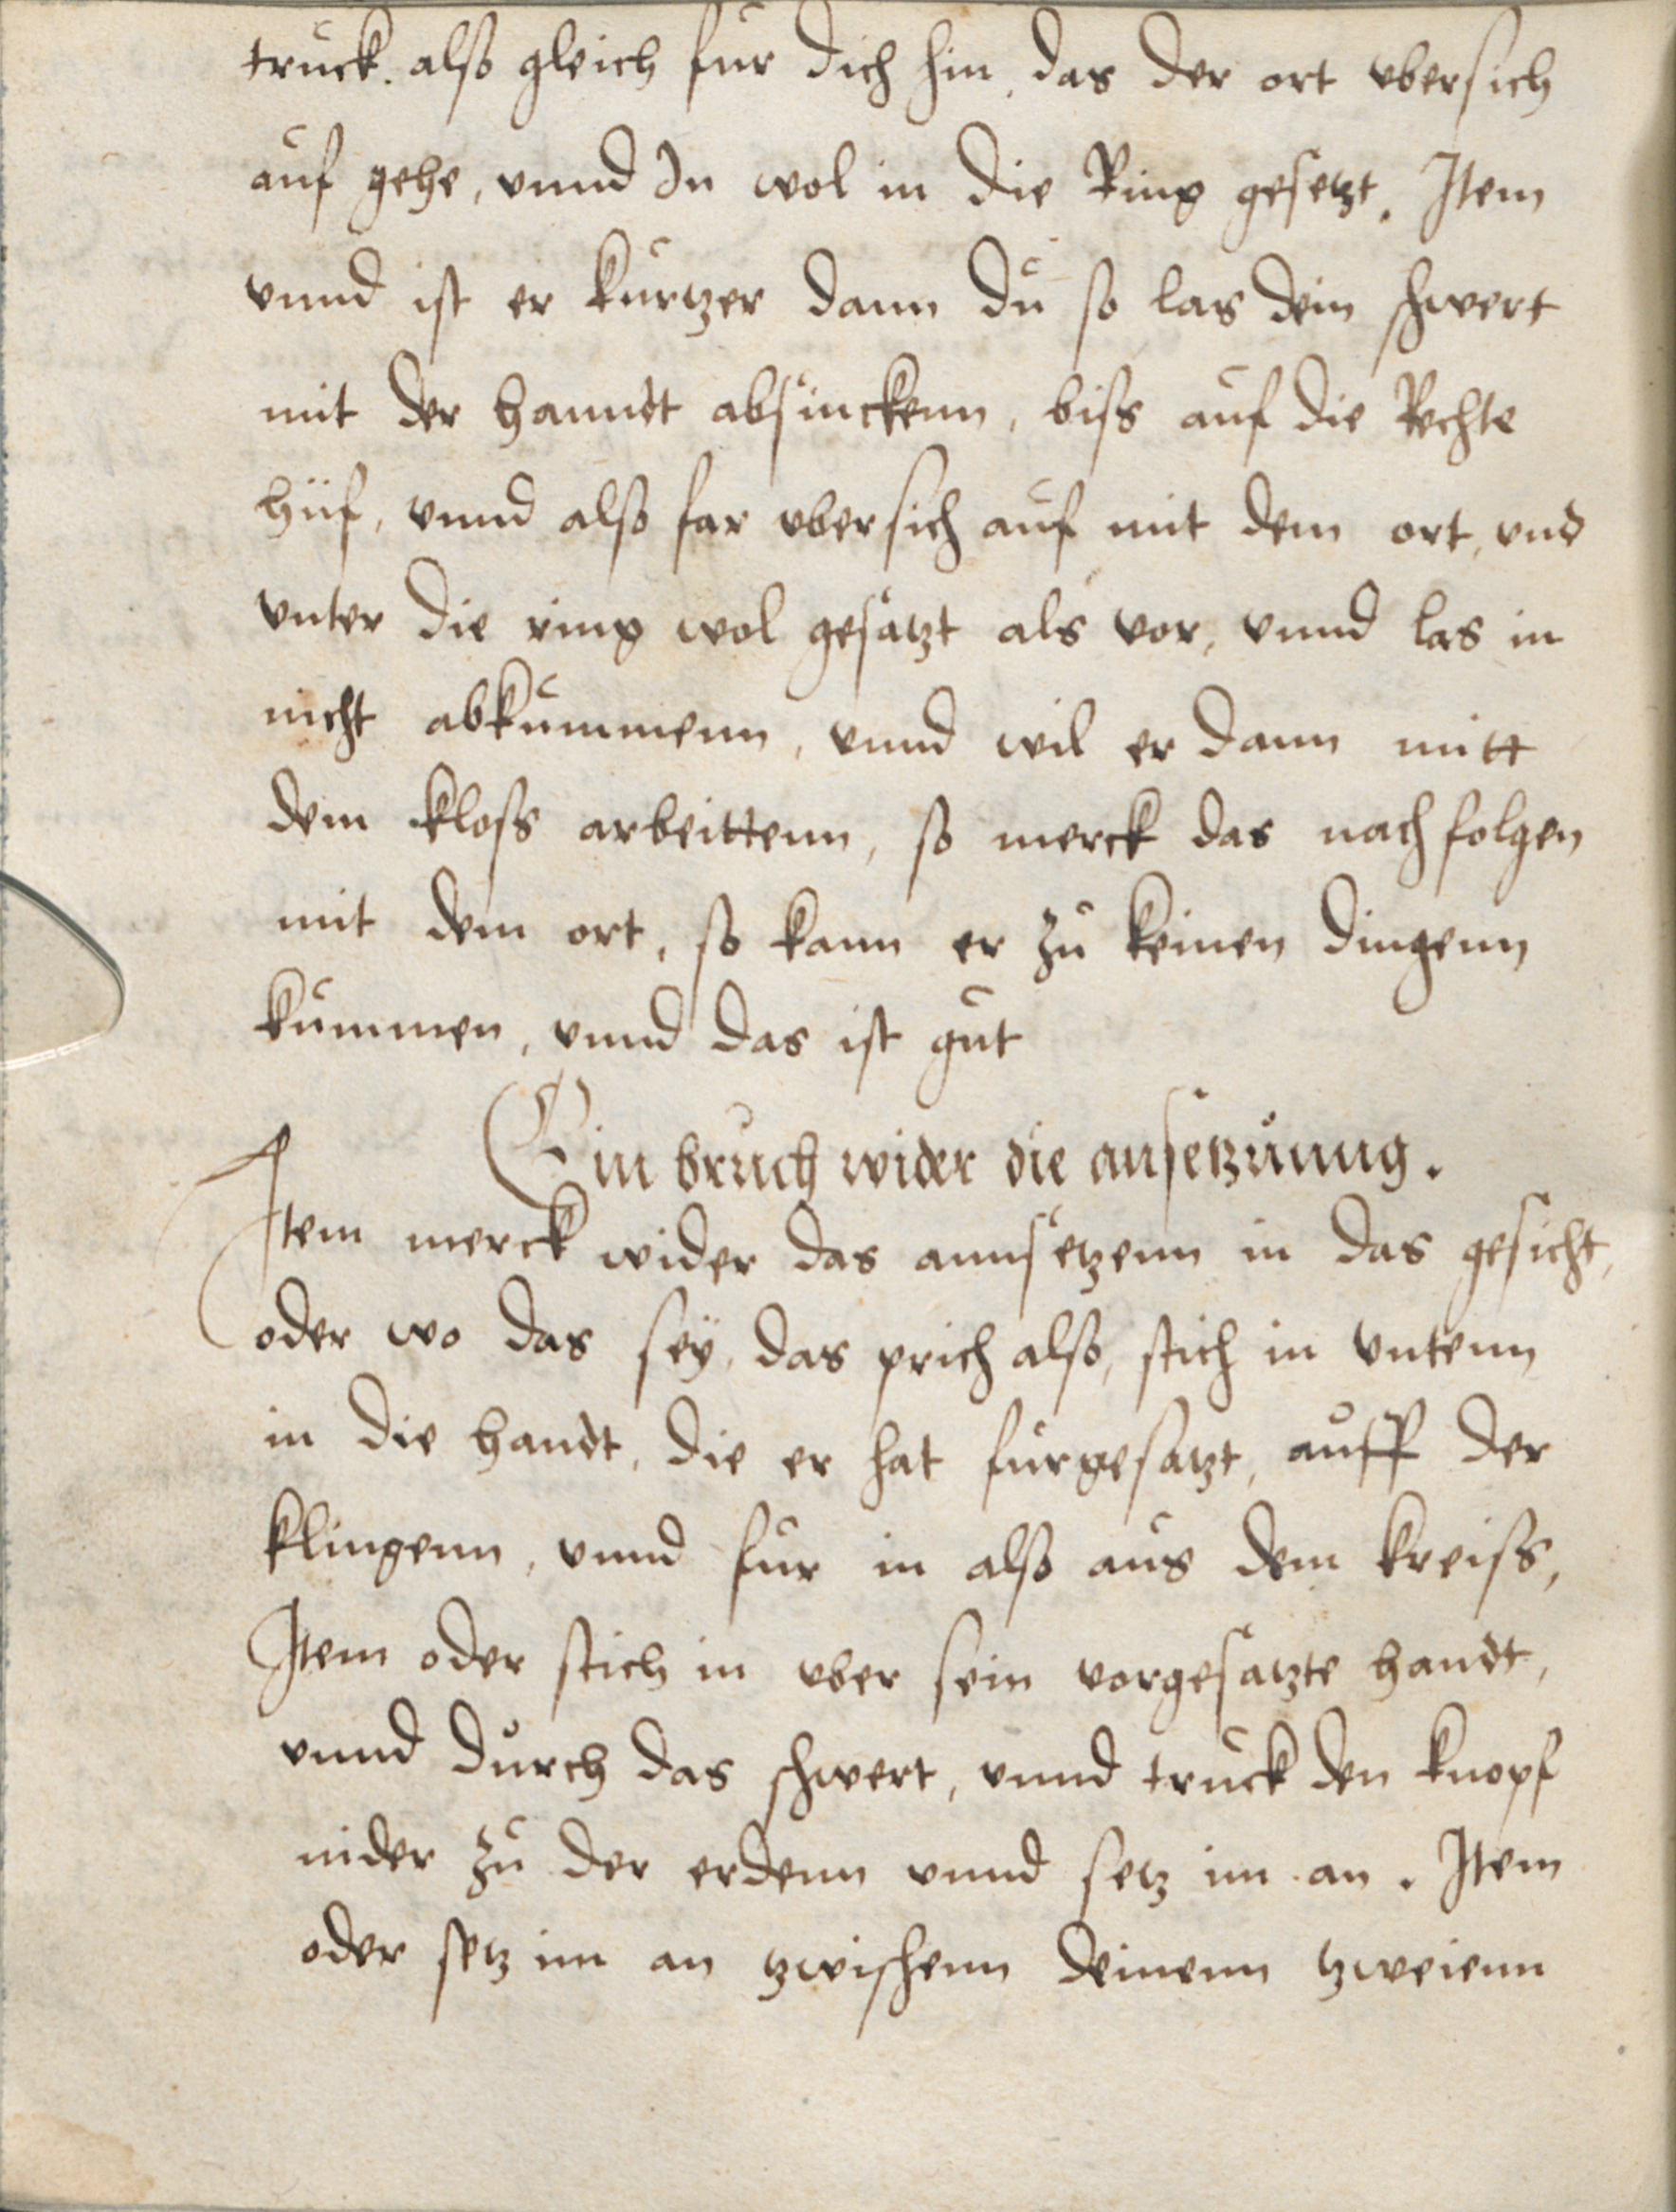 truck. also gleich fur dich hin, das der ort vbersich
auf gehe, vnnd In wol in die Ring gesetzt. Item
vnnd ist er kurtzer dann du so las dein schwert
mit der hanndt absinckenn, biss auf die Rechte
hüf, vnnd also far vbersich auf mit dem ort, vnd
vnter die ring wol gesatzt als vor, vnnd las in
nicht abkummenn, vnnd wil er dann mitt
dem kloss arbeittenn, so merck das nachfolgen
mit dem ort, so kann er zu keinen dingenn
kummen, vnnd das ist gut
Ein bruch wider die ansetzunng.
Item merck wider das annsetzenn in das gesicht,
oder wo das seÿ, das prich also, stich in vntenn
in die handt, die er hat furgesatzt, auff der
klingenn, vnnd fur in also aus dem kreiss,
Item oder stich in vber sein vorgesatzte handt,
vnnd durch das schwert, vnnd truck den knopf
nider zu der erdenn vnnd setz im an. Item
oder setz im an tzwischenn deinenn tzweienn